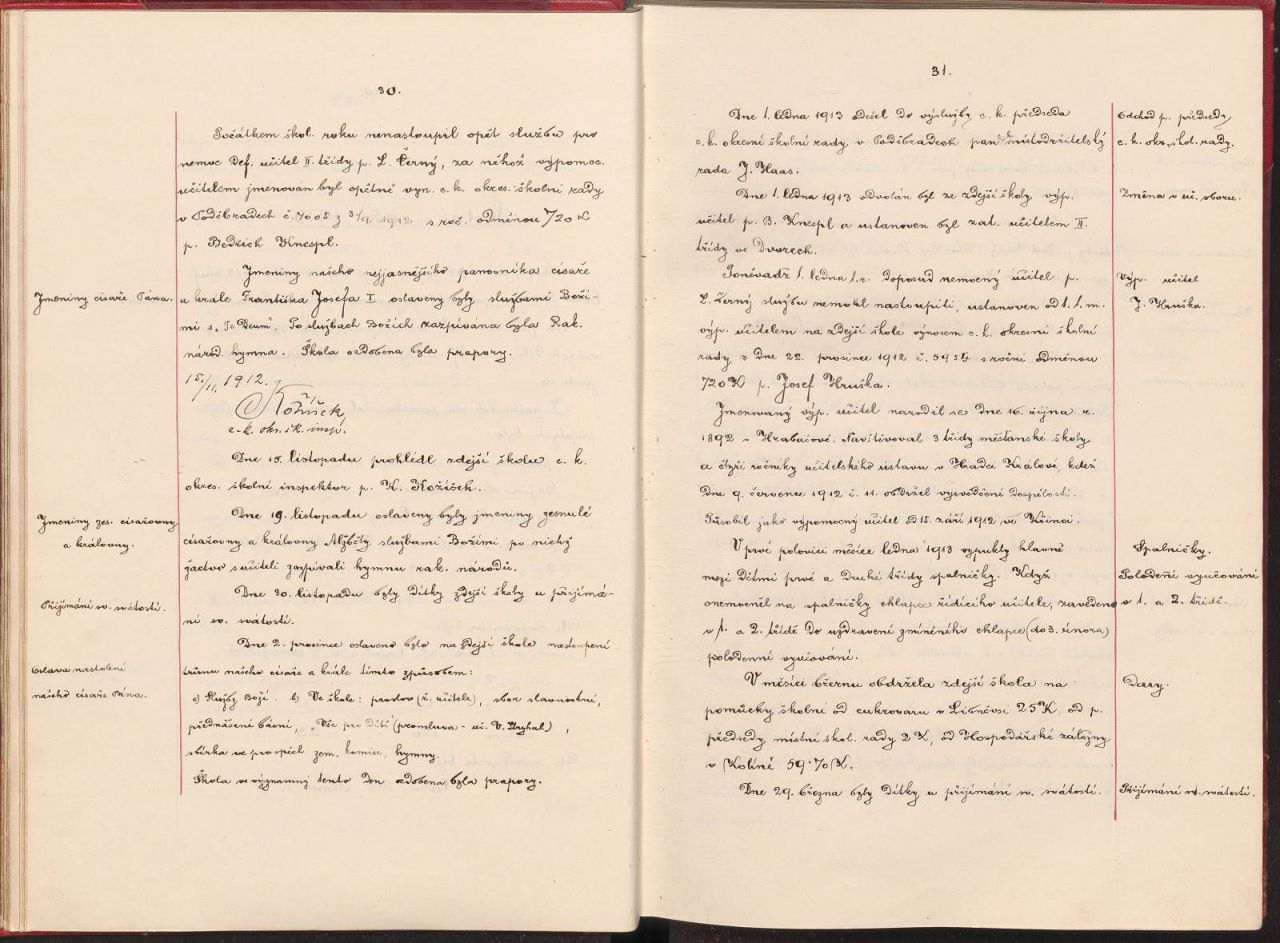 30.
Počátkem škol. roku nenastoupil opět službu pro
nemoc def. učitel II. třídy p. L. Černý, za něhož výpomoc.
učitelem jmenován byl opětně vyn. c. k. okres. školní rady
v Poděbradech č. 7005 z 3/9. 1912. s roč. odměnou 720 K
p. Bedřich Knespl.
Jmeniny císaře Pána.
Jmeniny našeho nejjasnějšího panovníka císaře
a krále Františka Josefa I. oslaveny byly službami Boží-
mi s „Te Deum“. Po službách Božích zazpívána byla Rak.
národ. hymna. Škola ozdobena byla prapory.
15./11. 1912.
Kožíšek
c. k. okr. šk. insp.
Dne 15. listopadu prohlédl zdejší školu c. k.
okres. školní inspektor p. K. Kožíšek.
Jmeniny zes. císařovny
a královny.
Dne 19. listopadu oslaveny byly jmeniny zesnulé
císařovny a královny Alžběty službami Božími po nichž
žactvo s učiteli zazpívali hymnu rak. národů.
Přijímání sv. svátostí.
Dne 30. listopadu byly dítky zdejší školy u přijímá-
ní sv. svátostí.
Oslava nastolení
našeho císaře Pána.
Dne 2. prosince oslaveno bylo na zdejší škole nastoupení
trůnu našeho císaře a krále tímto způsobem:
a) Služby Boží. b) Ve škole: proslov (ř. učitele), sbor slavnostní,
přednášení básní, „Vše pro dítě“ (promluva - uč. V. Stryhal),
sbírka ve prospěch zem. komise, hymny.
Škola v významný tento den ozdobena byla prapory.
31.
Dne 1. ledna 1913 odešel do výslužby c. k. předseda
c. k. okresní školní rady v Poděbradech pan místodržitelský
rada J. Haas.
Odchod p. předsedy
c. k. okr. škol. rady.
Dne 1. ledna 1913 odvolán byl ze zdejší školy výp.
učitel p. B. Knespl a ustanoven byl zat. učitelem II.
třídy ve Dvorech.
Změna v uč. sboru.
Poněvadž 1. ledna t. r. doposud nemocný učitel p.
L. Černý službu nemohl nastoupiti, ustanoven od 1. t. m.
výp. učitelem na zdejší škole výnosem c. k. okresní školní
rady z dne 22. prosince 1912 č. 5954 s roční odměnou
720 K p. Josef Hruška.
Výp. učitel
J. Hruška.
Jmenovaný výp. učitel narodil se dne 16. října r.
1892 v Hrabaiově. Navštěvoval 3 třídy měšťanské školy
a čtyři ročníky učitelského ústavu v Hradci Králové, kdež
dne 9. července 1912 č. 11. obdržel vysvědčení dospělosti.
Působil jako výpomocný učitel od 15. září 1912 ve Křinci.
V prvé polovici měsíce ledna 1913 vypukly hlavně
mezi dětmi prvé a druhé třídy spalničky. Když
onemocněl na spalničky chlapec řídícího učitele, zavedeno
v 1. a 2. třídě do uzdravení zmíněného chlapce (do 3. února)
polodenní vyučování.
Spalničky.
Polodenní vyučování
v 1. a 2. třídě.
V měsíci březnu obdržela zdejší škola na
pomůcky školní od cukrovaru v Libněvsi 25 K, od p.
předsedy místní škol. rady 2 K, od Hospodářské záložny
v Kolíně 59.70 K.
Dary.
Dne 29. března byly dítky u přijímání sv. svátostí.
Přijímání sv. svátostí.